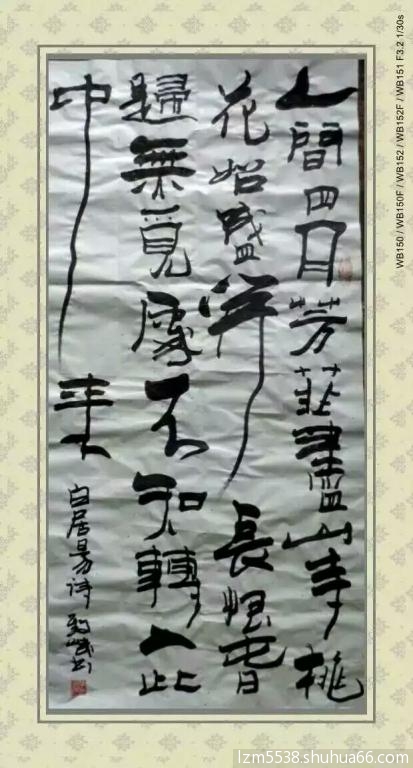 人間四月芳菲盡山寺桃
花始盛开長恨春
歸無覓處不知轉入此
中來
白居易诗
WB150 / WB150F / WB152 / WB152F / WB151 F3.2 1/30s
lzm5538.shuhua66.com